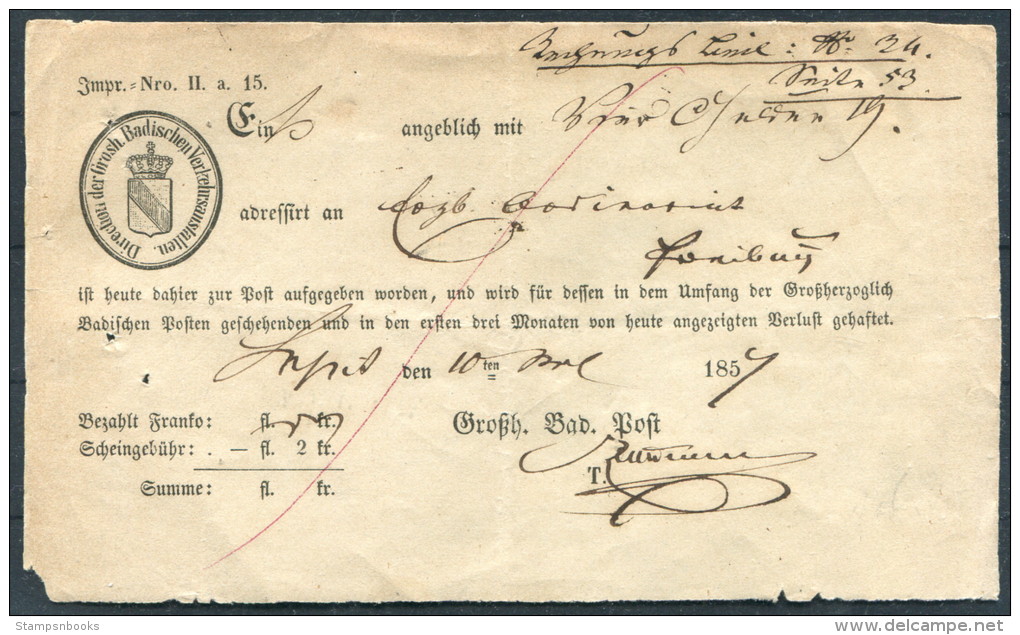 Rechnungs Beil: No 24.
Seite 53
Impr.=Nro. II. a. 15.
Ein angeblich mit Vier Gulden
Direction der Grosh. Badischen Verkehrsanstalten.
adressirt an Erzb. Ordinariat
Freiburg
ist heute dahier zur Post aufgegeben worden, und wird für dessen in dem Umfang der Großherzoglich
Badischen Posten geschehenden und in den ersten drei Monaten von heute angezeigten Verlust gehaftet.
den 10ten 1857
Bezahlt Franko: fl. kr.
Großh. Bad. Post
Scheingebühr: . — fl. 2 kr.
T.
Summe: fl. kr.
Stampsnbooks
delcampe.net